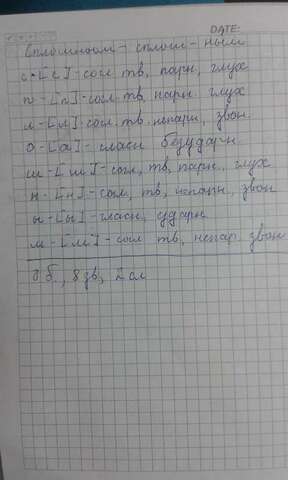 DATE:
Сплошном - сплош - ным
с - [с] - согл тв, парн, глух
п - [п] - согл, тв, парн. глух
л - [л] согл. тв. непарн, звон.
о - [а] - гласн безударн.
ш - [ш] - согл, тв, парн. глух
н - [н] - согл, тв, непарн, звон
ы - [ы] - гласн, ударн.
м - [м] - согл тв, непар звон
8 б., 8 зв, 2 сл